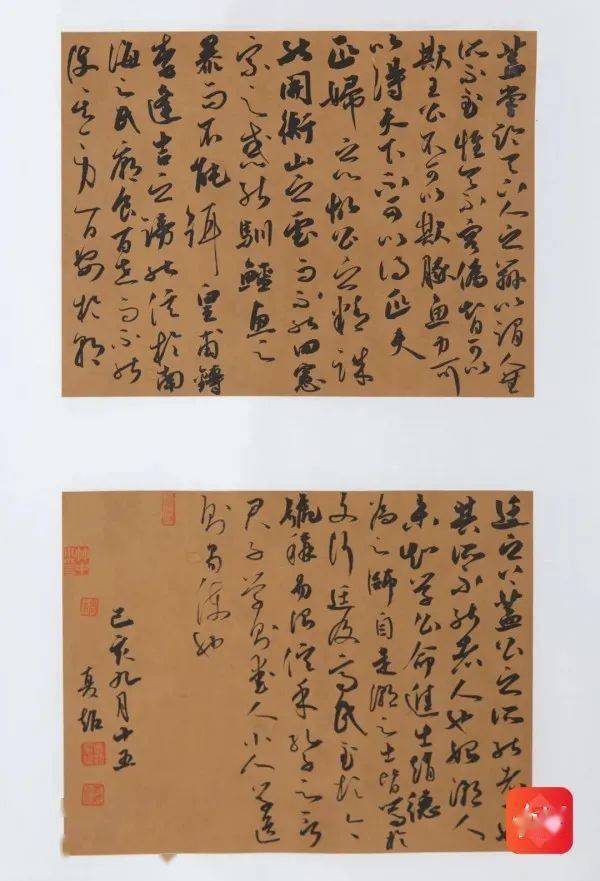 蓋嘗論天人之辨以謂人無
所不至惟天不容偽智可以
欺王公不可以欺豚魚力可
以得天下不可以得匹夫
匹婦之心故公之精誠
能開衡山之雲而不能回憲
宗之惑能馴鱷魚之
暴而不能弭皇甫鎛
李逢吉之謗能信於南
海之民廟食百世而不能
使其身一日安於朝
廷之上蓋公之所能者天也
其所不能者人也始潮人
未知學公命進士趙德
為之師自是潮之士皆篤於
文行延及齊民至於今
號稱易治信乎孔子之言
君子學則愛人小人學道
則易使也
己亥九月十五